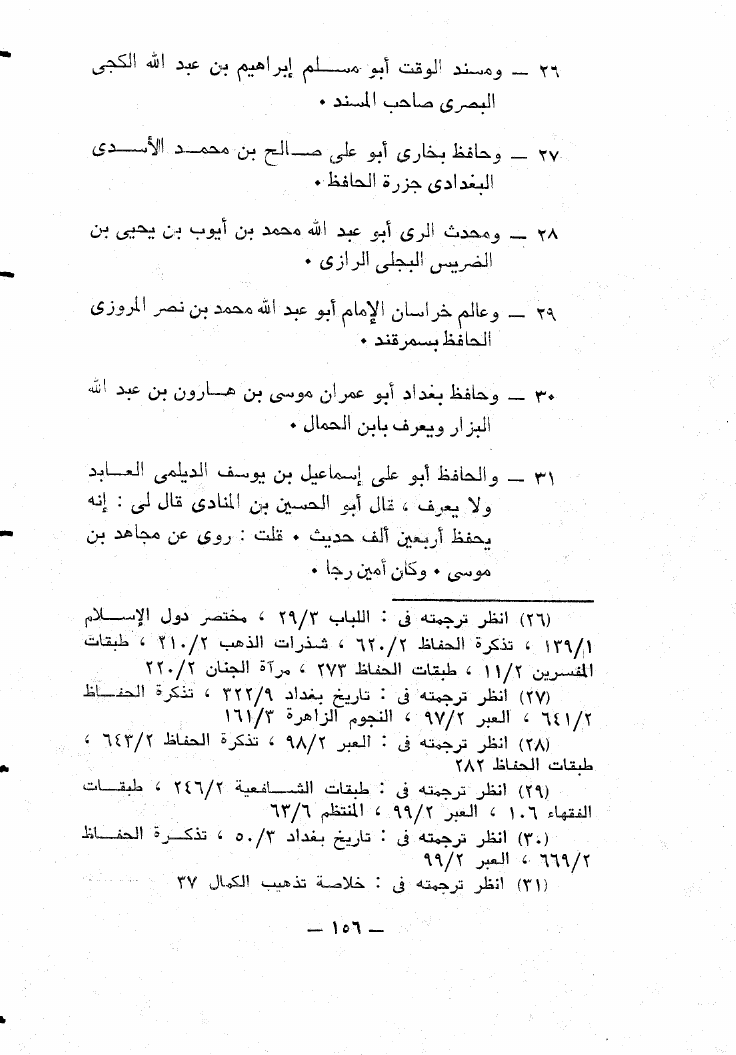 ٢٦ — ومسند الوقت أبو مسلم إبراهيم بن عبد الله الكجى
البصرى صاحب المسند ٠
٢٧ — وحافظ بخارى أبو على صالح بن محمد الأسدى
البغدادى جزرة الحافظ ٠
٢٨ — ومحدث الرى أبو عبد الله محمد بن أيوب بن يحيى بن
الضريس البجلى الرازى ٠
٢٩ — وعالم خراسان الإمام أبو عبد الله محمد بن نصر المروزى
الحافظ بسمرقند ٠
٣٠ — وحافظ بغداد أبو عمران موسى بن هارون بن عبد الله
البزار ويعرف بابن الحمال ٠
٣١ — والحافظ أبو على إسماعيل بن يوسف الديلمى العابد
ولا يعرف ، قال أبو الحسين بن المنادى قال لى : إنه
يحفظ أربعين ألف حديث ٠ قلت : روى عن مجاهد بن
موسى ٠ وكان أمين رجا ٠
(٢٦) انظر ترجمته فى : اللباب ٢٩/٣ ، مختصر دول الإسلام
١٣٩/١ ، تذكرة الحفاظ ٦٢٠/٢ ، شذرات الذهب ٢١٠/٢ ، طبقات
المفسرين ١١/٢ ، طبقات الحفاظ ٢٧٣ ، مرآة الجنان ٢٢٠/٢
(٢٧) انظر ترجمته فى : تاريخ بغداد ٣٢٢/٩ ، تذكرة الحفاظ
٦٤١/٢ ، العبر ٩٧/٢ ، النجوم الزاهرة ١٦١/٣
(٢٨) انظر ترجمته فى : العبر ٩٨/٢ ، تذكرة الحفاظ ٦٤٣/٢ ،
طبقات الحفاظ ٢٨٢
(٢٩) انظر ترجمته فى : طبقات الشافعية ٢٤٦/٢ ، طبقات
الفقهاء ١٠٦ ، العبر ٩٩/٢ ، المنتظم ٦٣/٦
(٣٠) انظر ترجمته فى : تاريخ بغداد ٥٠/٣ ، تذكرة الحفاظ
٦٦٩/٢ ، العبر ٩٩/٢
(٣١) انظر ترجمته فى : خلاصة تذهيب الكمال ٣٧
— ١٥٦ —